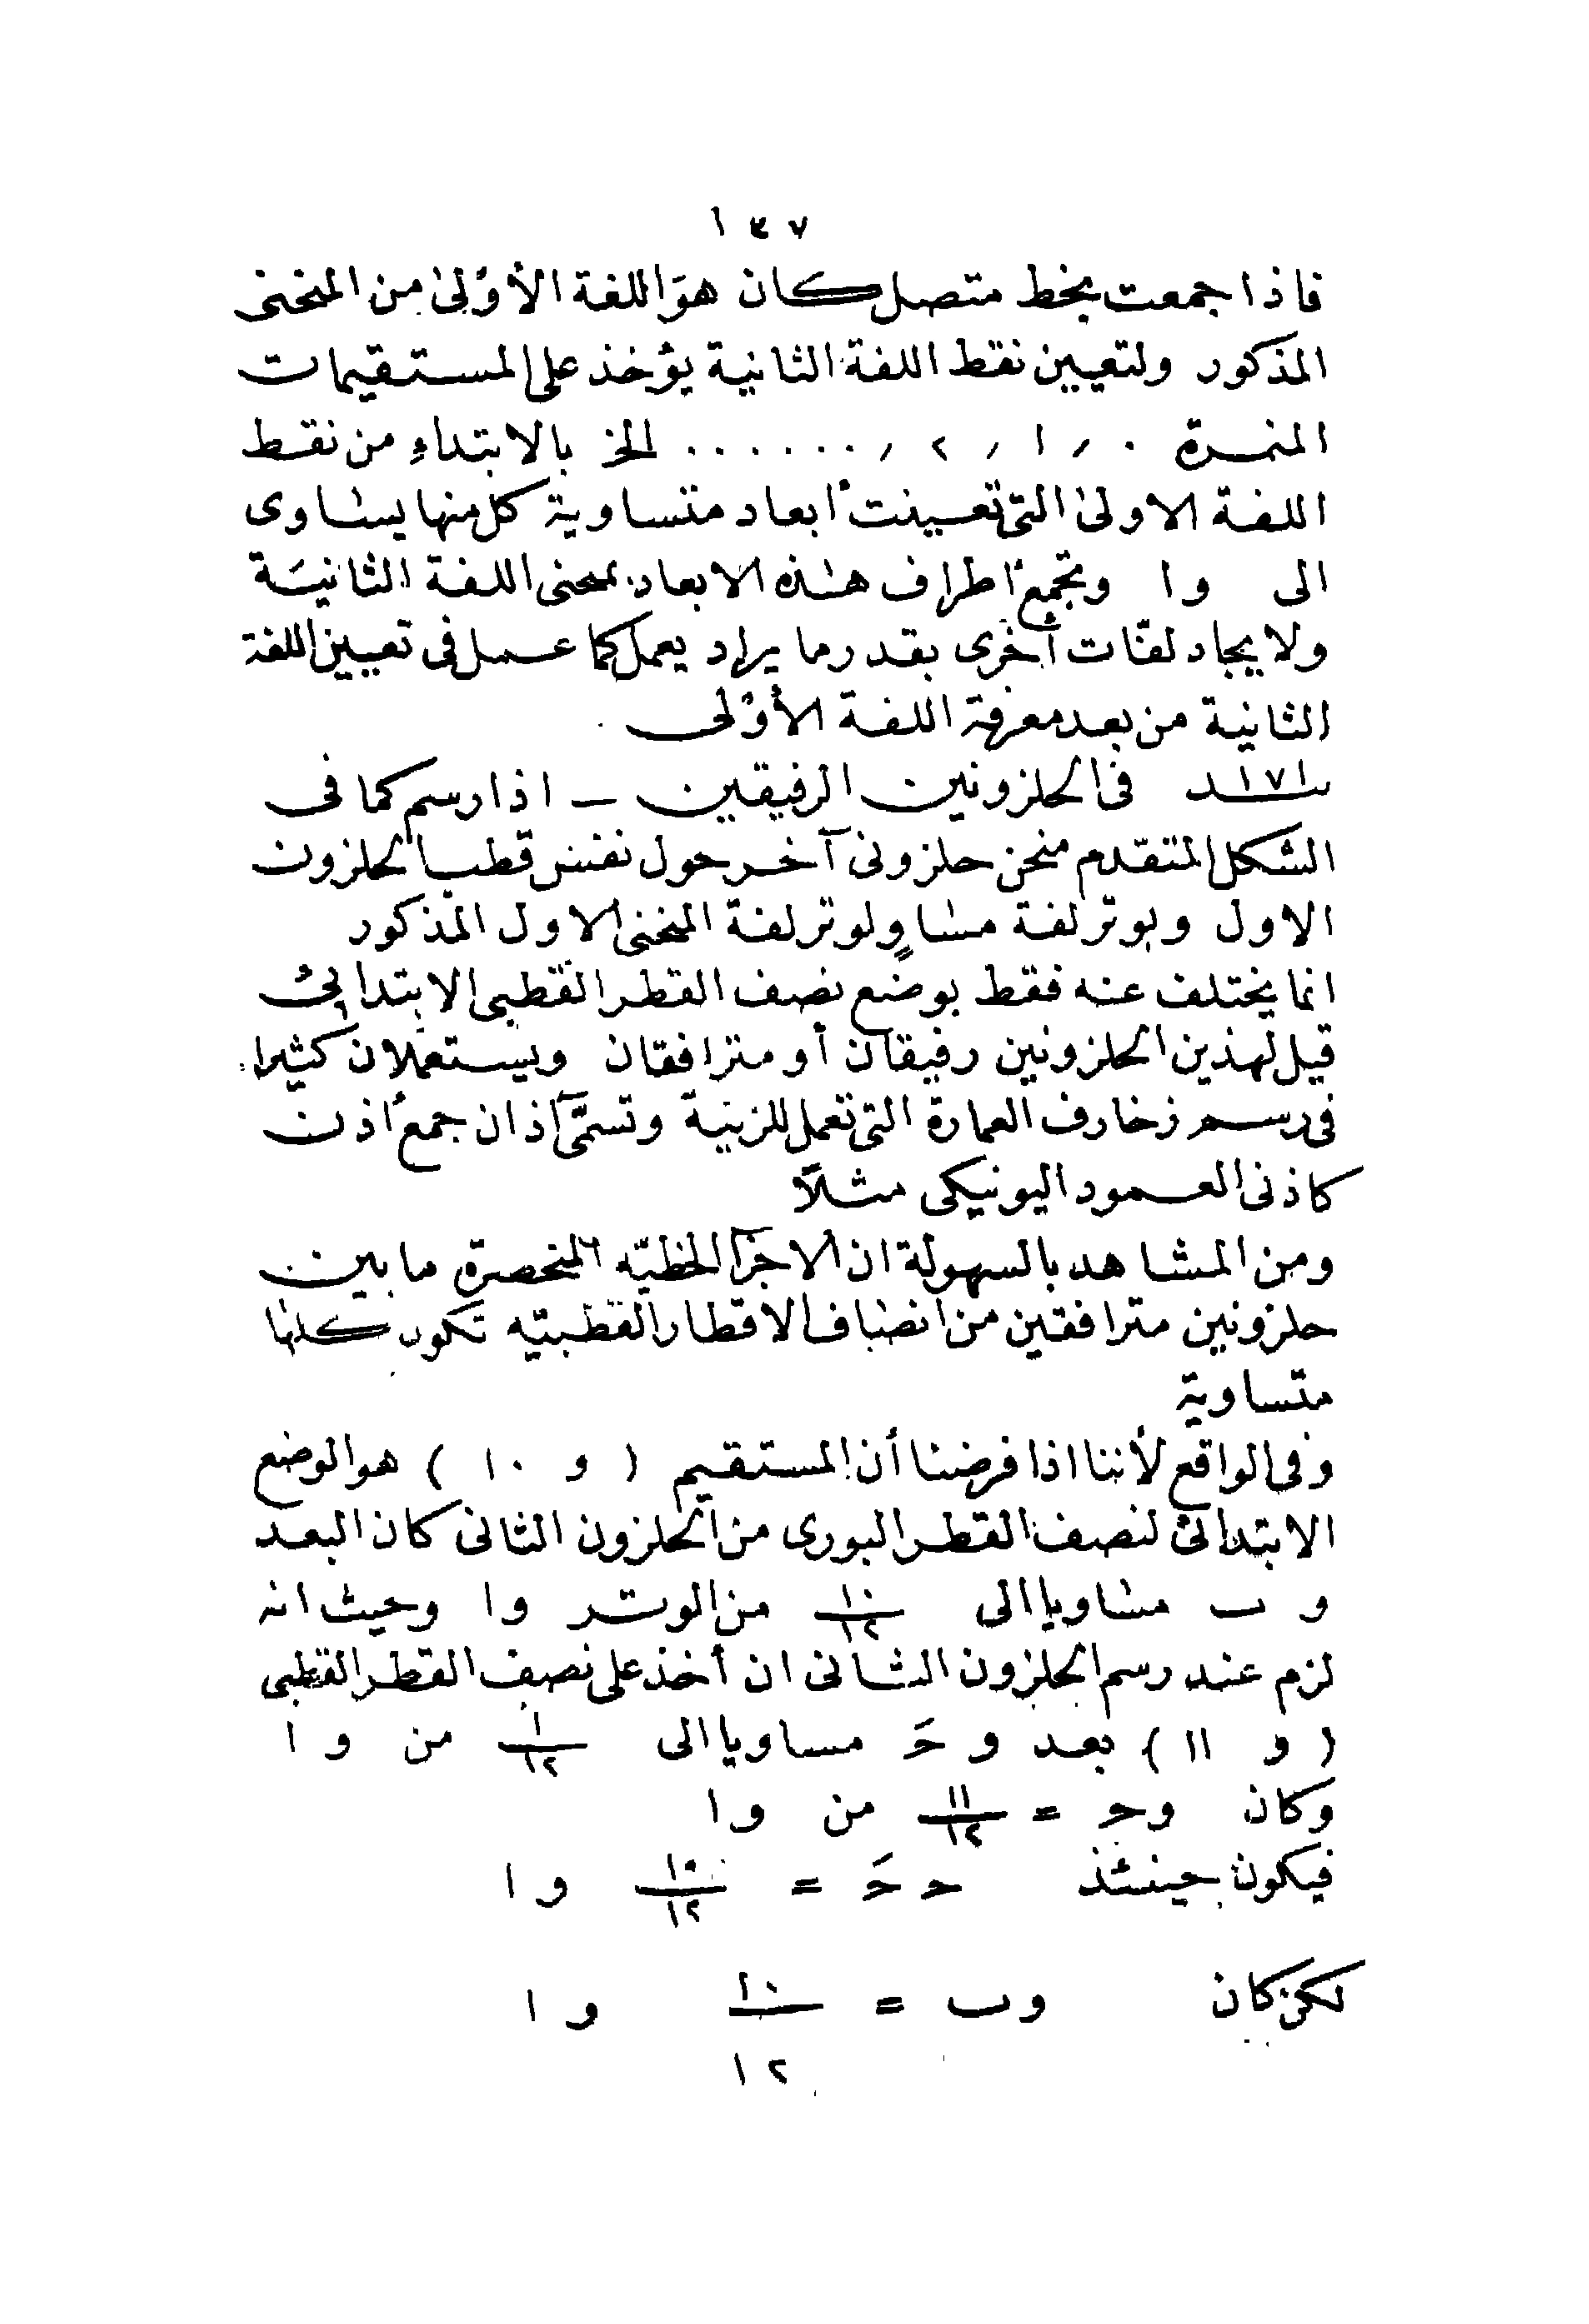 ١٣٧
فاذا جمعت بخط متصل كان هوَ اللفة الأوْلىٰ من المنحنى
المذكور ولتعيين نقط اللفة الثانية يؤخذ على المستقيمات
المنمرة ٠ ، ١ ، ٢ ، ...... الخ بالابتداءِ من نقط
اللفة الاولىٰ التى تعينت ابعاد متساوية كل منها يساوى
الى وا وتجمع اطراف هذه الابعاد بمنحنى اللفة الثانيَة
ولايجاد لفّات أخرى بقدر ما يراد يعمل كما عمل فى تعيين اللفة
الثانية من بعد معرفة اللفة الأوْلى
١٧١ـد فى الحلزونين الرفيقين ــ اذا رسم كما فى
الشكل المتقدم منحن حلزونى آخر حول نفس قطب الحلزون
الاول وبوتر لفة مساوٍ لوتر لفة المنحنى الاول المذكور
انما يختلف عنه فقط بوضع نصف القطر القطبى الابتدائى
قيل لهذين الحلزونين رفيقان أو مترافقان ويستعملان كثيرا
فى رسم زخارف العمارة التى تعمل للزينة وتسمَّى آذان جمع اذن
كاذنى العمود اليونيكى مثلاً
ومن المشاهد بالسهولة ان الاجزآ الخطيّه المنحصرة ما بين
حلزونين مترافقين من انصاف الاقطار القطبيّه تكون كلها
متساوية
وفى الواقع لأننا اذا فرضنا أن المستقيم ( و ١٠ ) هو الوضع
الابتدائى لنصف القطر البورى من الحلزون الثانى كان البعد
و ب مساويا الى ١٠/١٢ من الوتر وا وحيث انه
لزم عند رسم الحلزون الثانى ان أخذ على نصف القطر القطبى
( و ١١ ) بعد و حَ مساويا الى ١/١٢ من و ا
وكان وحـ = ١١/١٢ من وا
فيكون حينئذ حـ حَ = ١٠/١٢ و ا
لكن كان وب = ١٠/١٢ و ا